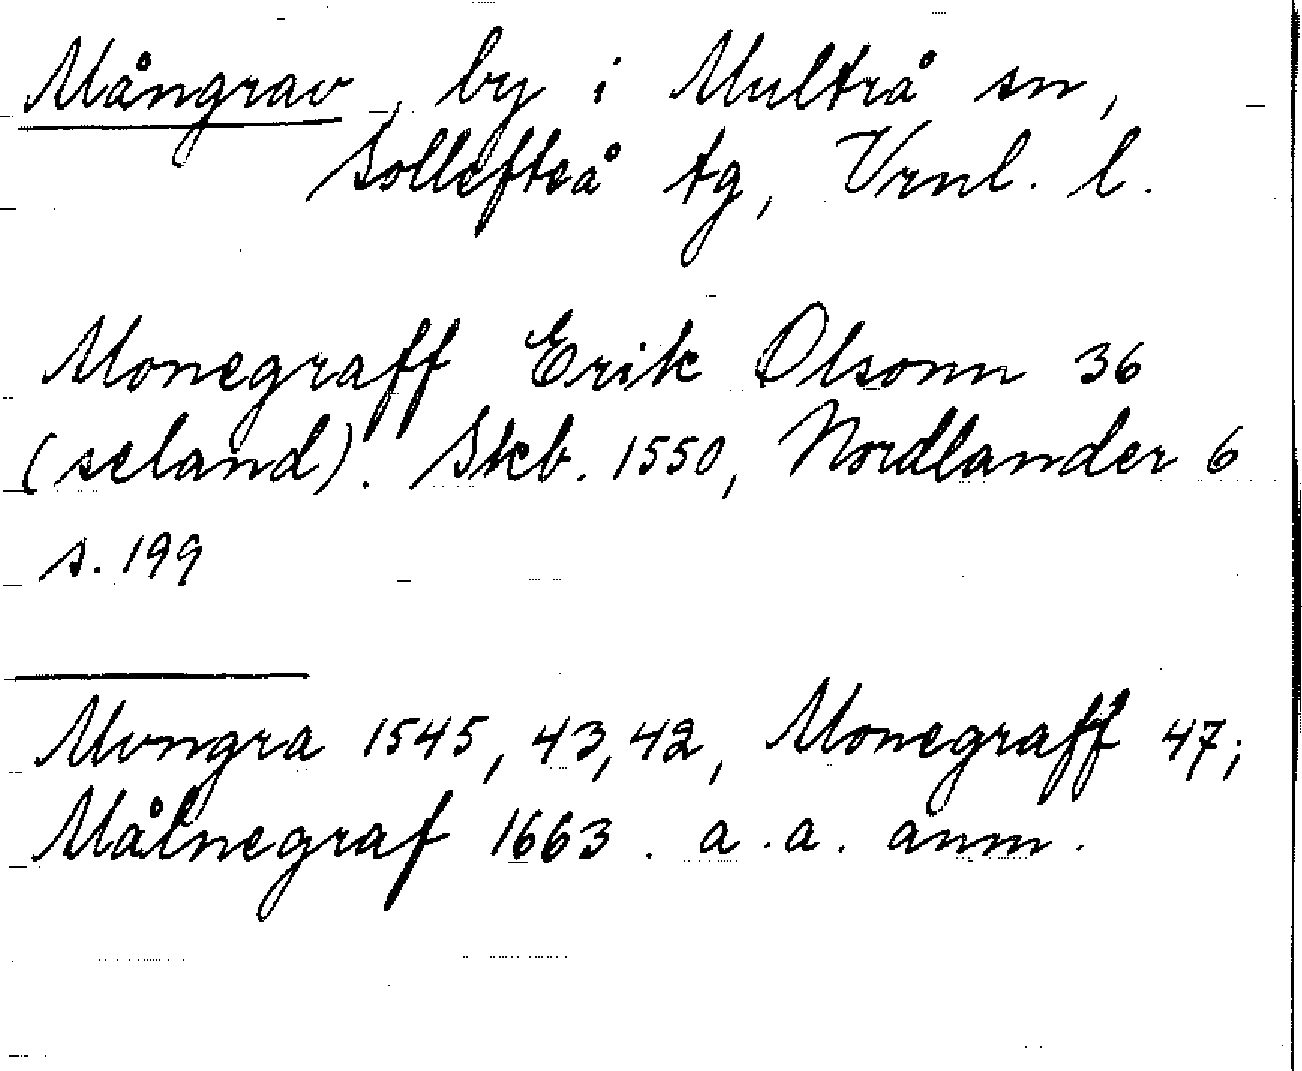 Mångrav, by i Multrå sn,
Sollefteå tg, Vrnl. l.
Monegraff Erik Olsonn 36
(seland). Skb. 1550, Nordlander 6
s. 199
Mongra 1545, 43, 42, Monegraff 47;
Målnegraf 1663. a.a. anm.